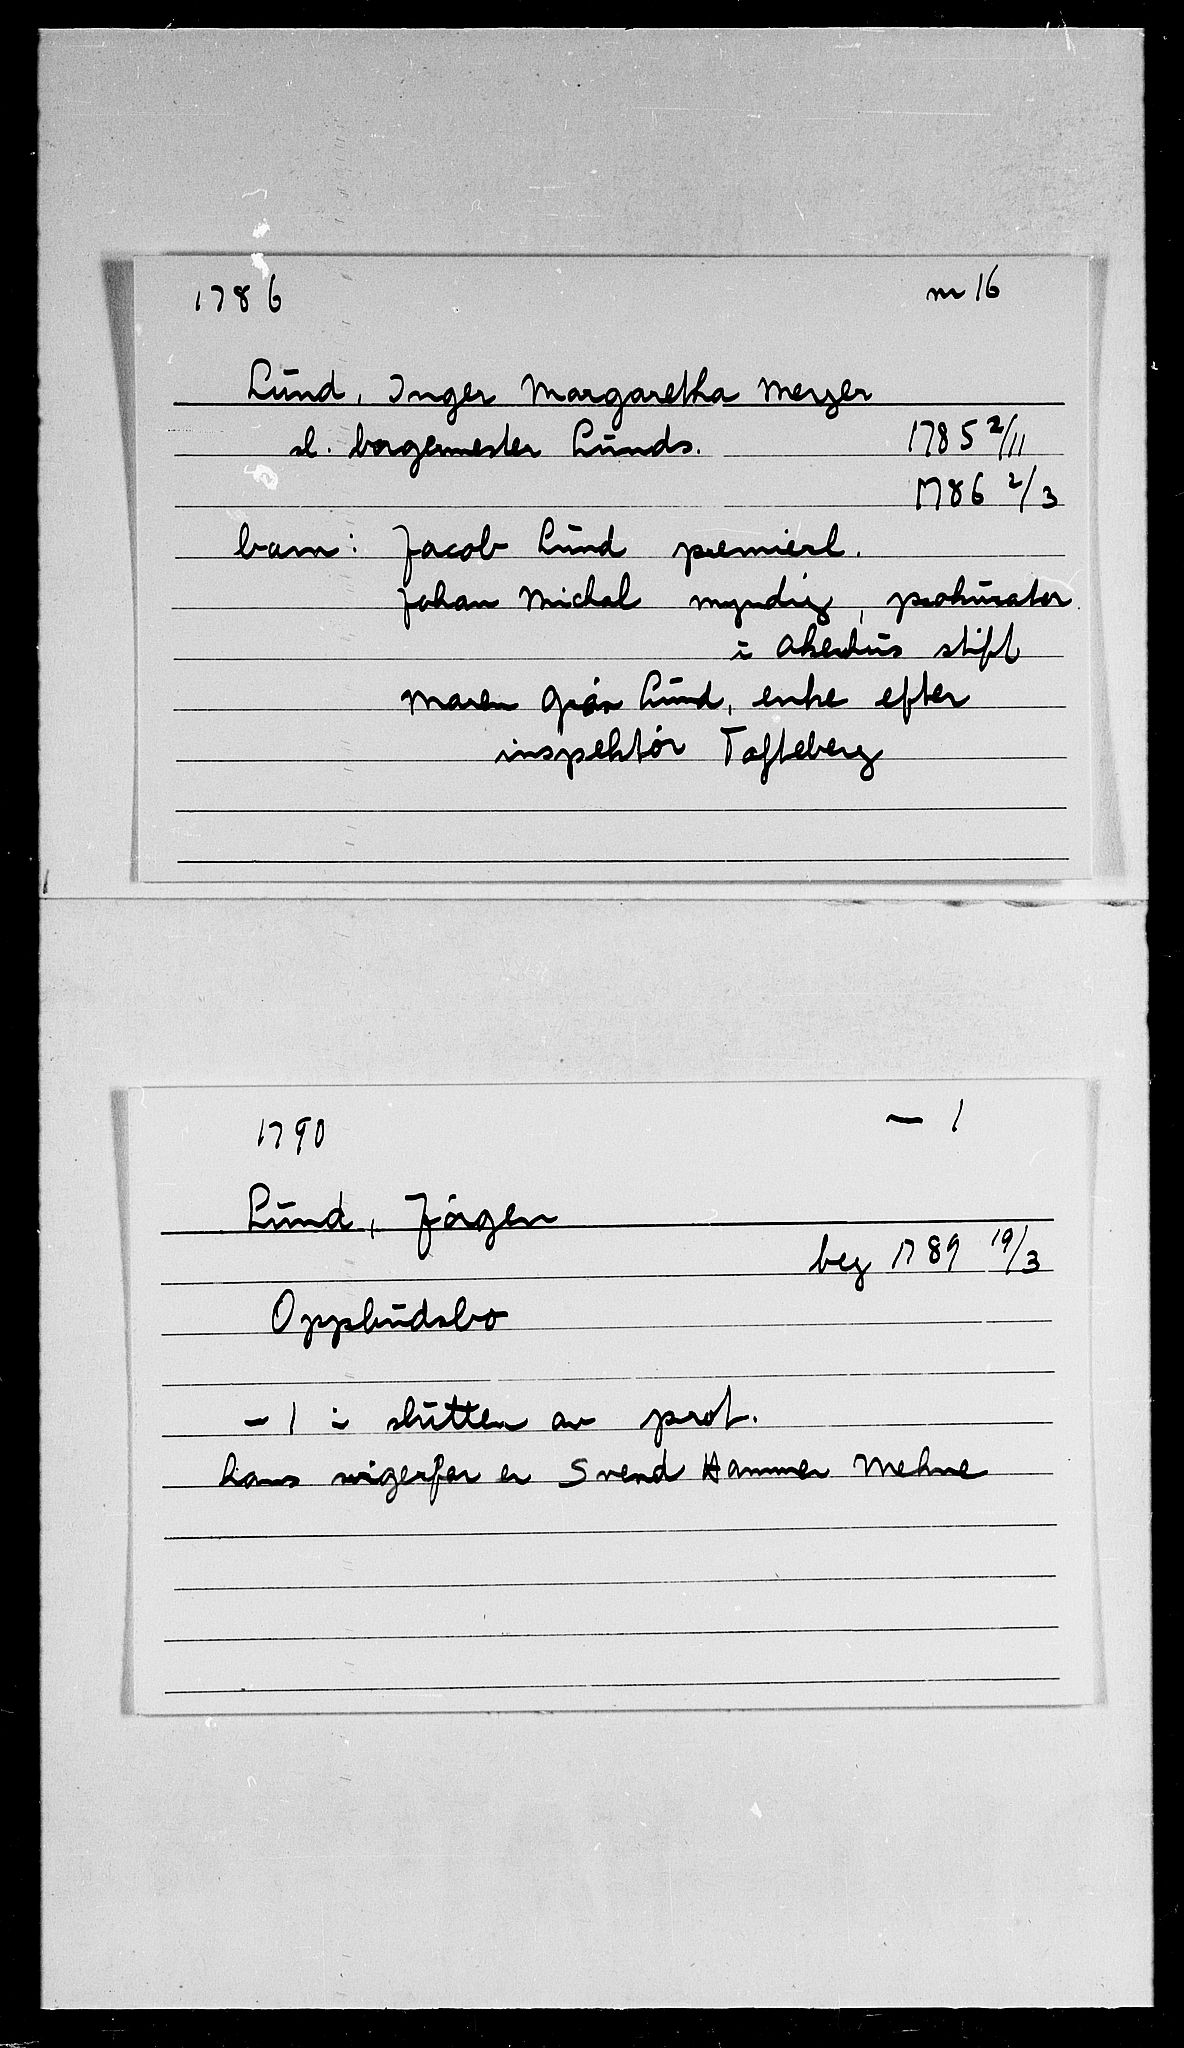 1786 nr 16
Lund, Inger Margaretha Meyer
sl. borgermester Lunds. 1785 2/11
1786 2/3
barn: Jacob Lund premierl.
Johan Michal myndig, prokurator
i Akerhus stift
Maren Lund, enke efter
inspektör Tofteberg
1790 – 1
Lund, Jörgen
beg 1789 19/3
Oppbudsbo
– 1 i slutten av prot.
hans svigerfar er Svend Hammer Mehne